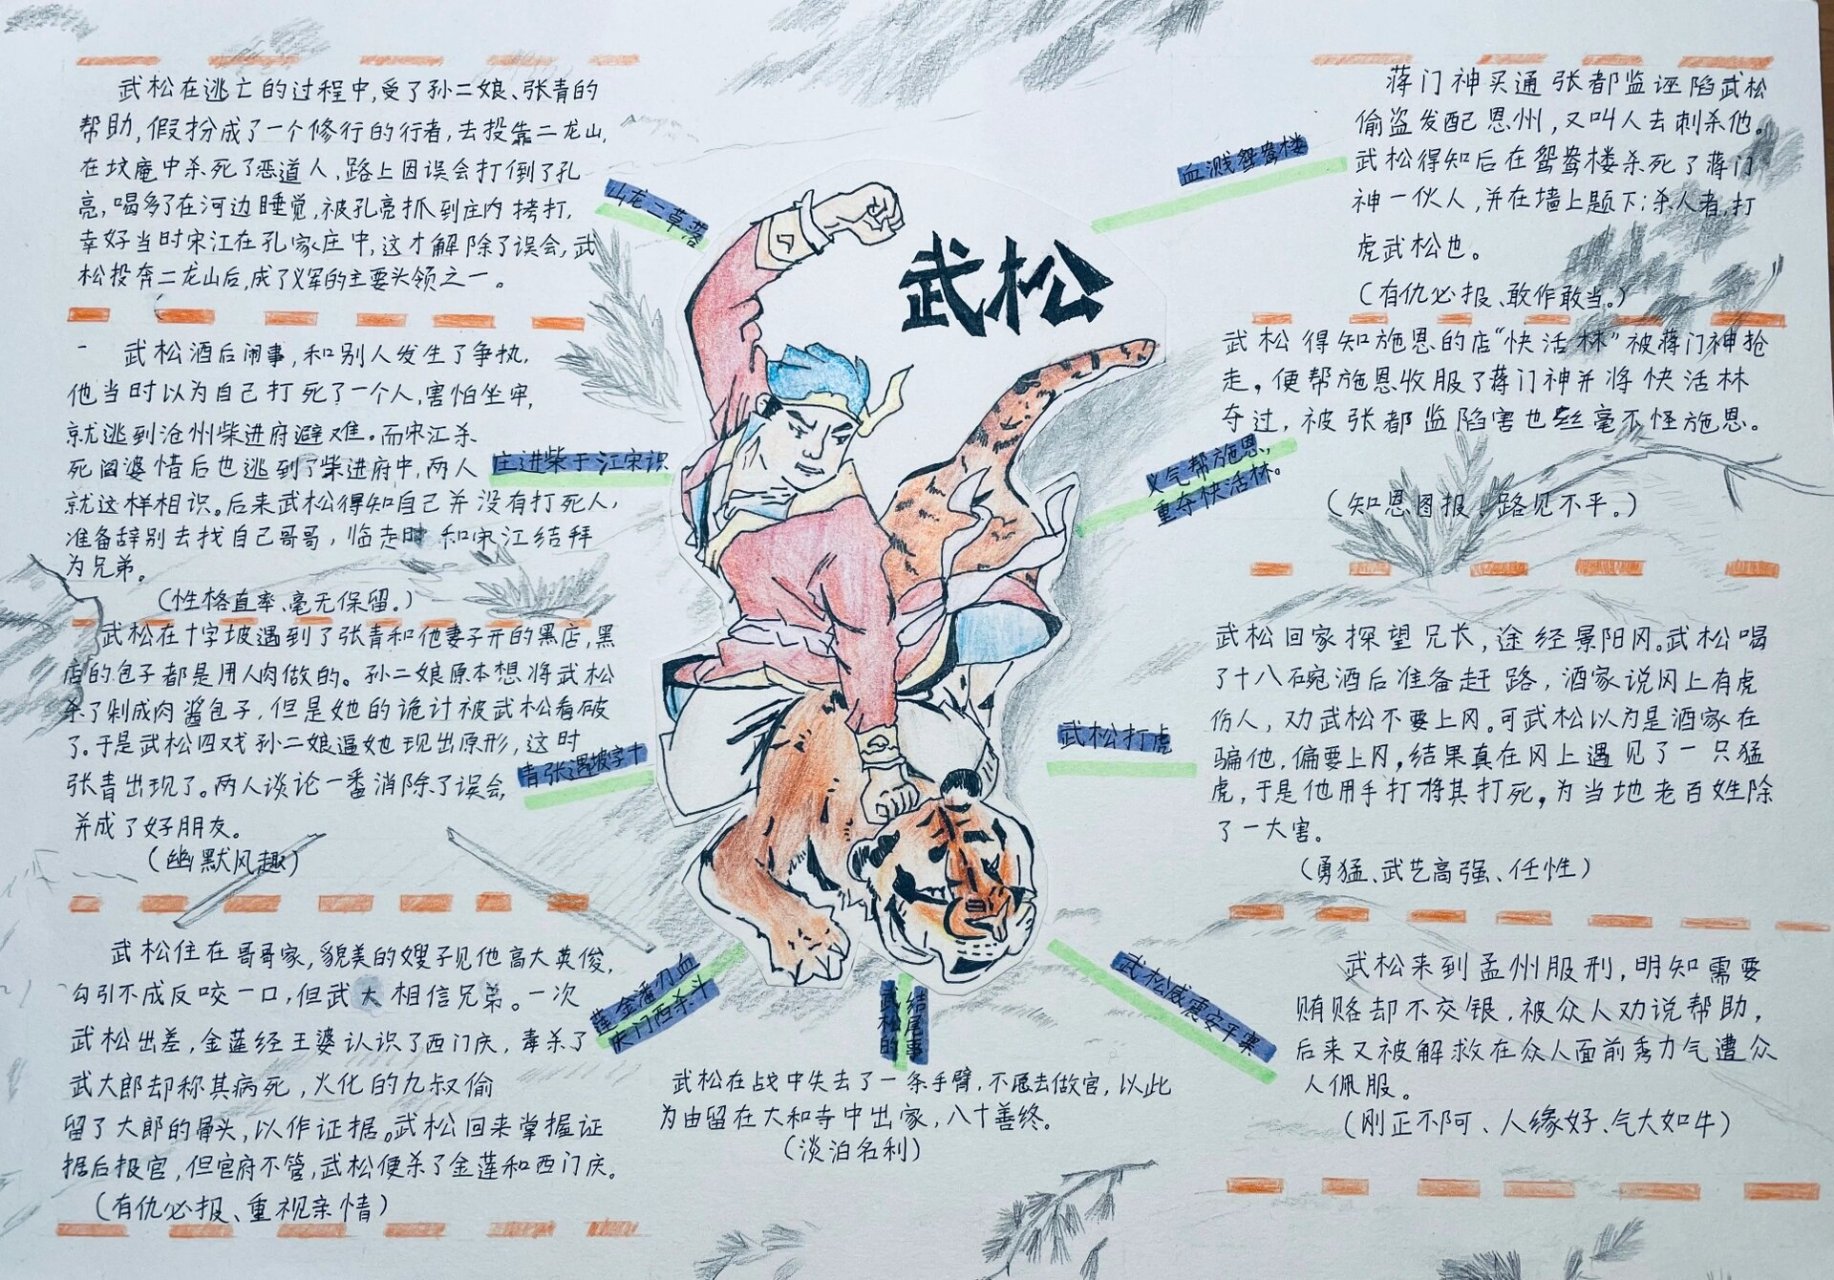 武松
武松在逃亡的过程中,受了孙二娘、张青的
帮助,假扮成了一个修行的行者,去投靠二龙山,
在坟庵中杀死了恶道人,路上因误会打倒了孔
亮,喝多了在河边睡觉,被孔亮抓到庄内拷打,
幸好当时宋江在孔家庄中,这才解除了误会,武
松投奔二龙山后,成了义军的主要头领之一。
山龙二草落
武松酒后闹事,和别人发生了争执,
他当时以为自己打死了一个人,害怕坐牢,
就逃到沧州柴进府避难。而宋江杀
死阎婆惜后也逃到了柴进府中,两人
就这样相识。后来武松得知自己并没有打死人,
准备辞别去找自己哥哥,临走时和宋江结拜
为兄弟。
(性格直率、毫无保留。)
庄进柴于江宋识
武松在十字坡遇到了张青和他妻子开的黑店,黑
店的包子都是用人肉做的。孙二娘原本想将武松
杀了剁成肉酱包子,但是她的诡计被武松看破
了。于是武松四戏孙二娘逼她现出原形,这时
张青出现了。两人谈论一番消除了误会,
并成了好朋友。
(幽默风趣)
青张遇坡字十
武松住在哥哥家,貌美的嫂子见他高大英俊,
勾引不成反咬一口,但武大相信兄弟。一次
武松出差,金莲经王婆认识了西门庆,毒杀了
武大郎却称其病死,火化的九叔偷
留了大郎的骨头,以作证据。武松回来掌握证
据后报官,但官府不管,武松便杀了金莲和西门庆。
(有仇必报、重视亲情)
莲金潘刃血
庆门西杀斗
结尾事
武松的
武松在战中失去了一条手臂,不愿去做官,以此
为由留在大和寺中出家,八十善终。
(淡泊名利)
血溅鸳鸯楼
蒋门神买通张都监诬陷武松
偷盗发配恩州,又叫人去刺杀他。
武松得知后在鸳鸯楼杀死了蒋门
神一伙人,并在墙上题下:杀人者,打
虎武松也。
(有仇必报、敢作敢当。)
义气帮施恩,
重夺快活林。
武松得知施恩的店“快活林”被蒋门神抢
走,便帮施恩收服了蒋门神并将快活林
夺过,被张都监陷害也丝毫不怪施恩。
(知恩图报、路见不平。)
武松打虎
武松回家探望兄长,途经景阳冈。武松喝
了十八碗酒后准备赶路,酒家说冈上有虎
伤人,劝武松不要上冈。可武松以为是酒家在
骗他,偏要上冈,结果真在冈上遇见了一只猛
虎,于是他用手打将其打死,为当地老百姓除
了一大害。
(勇猛、武艺高强、任性)
武松威震安平寨
武松来到孟州服刑,明知需要
贿赂却不交银,被众人劝说帮助,
后来又被解救在众人面前秀力气遭众
人佩服。
(刚正不阿、人缘好、气大如牛)